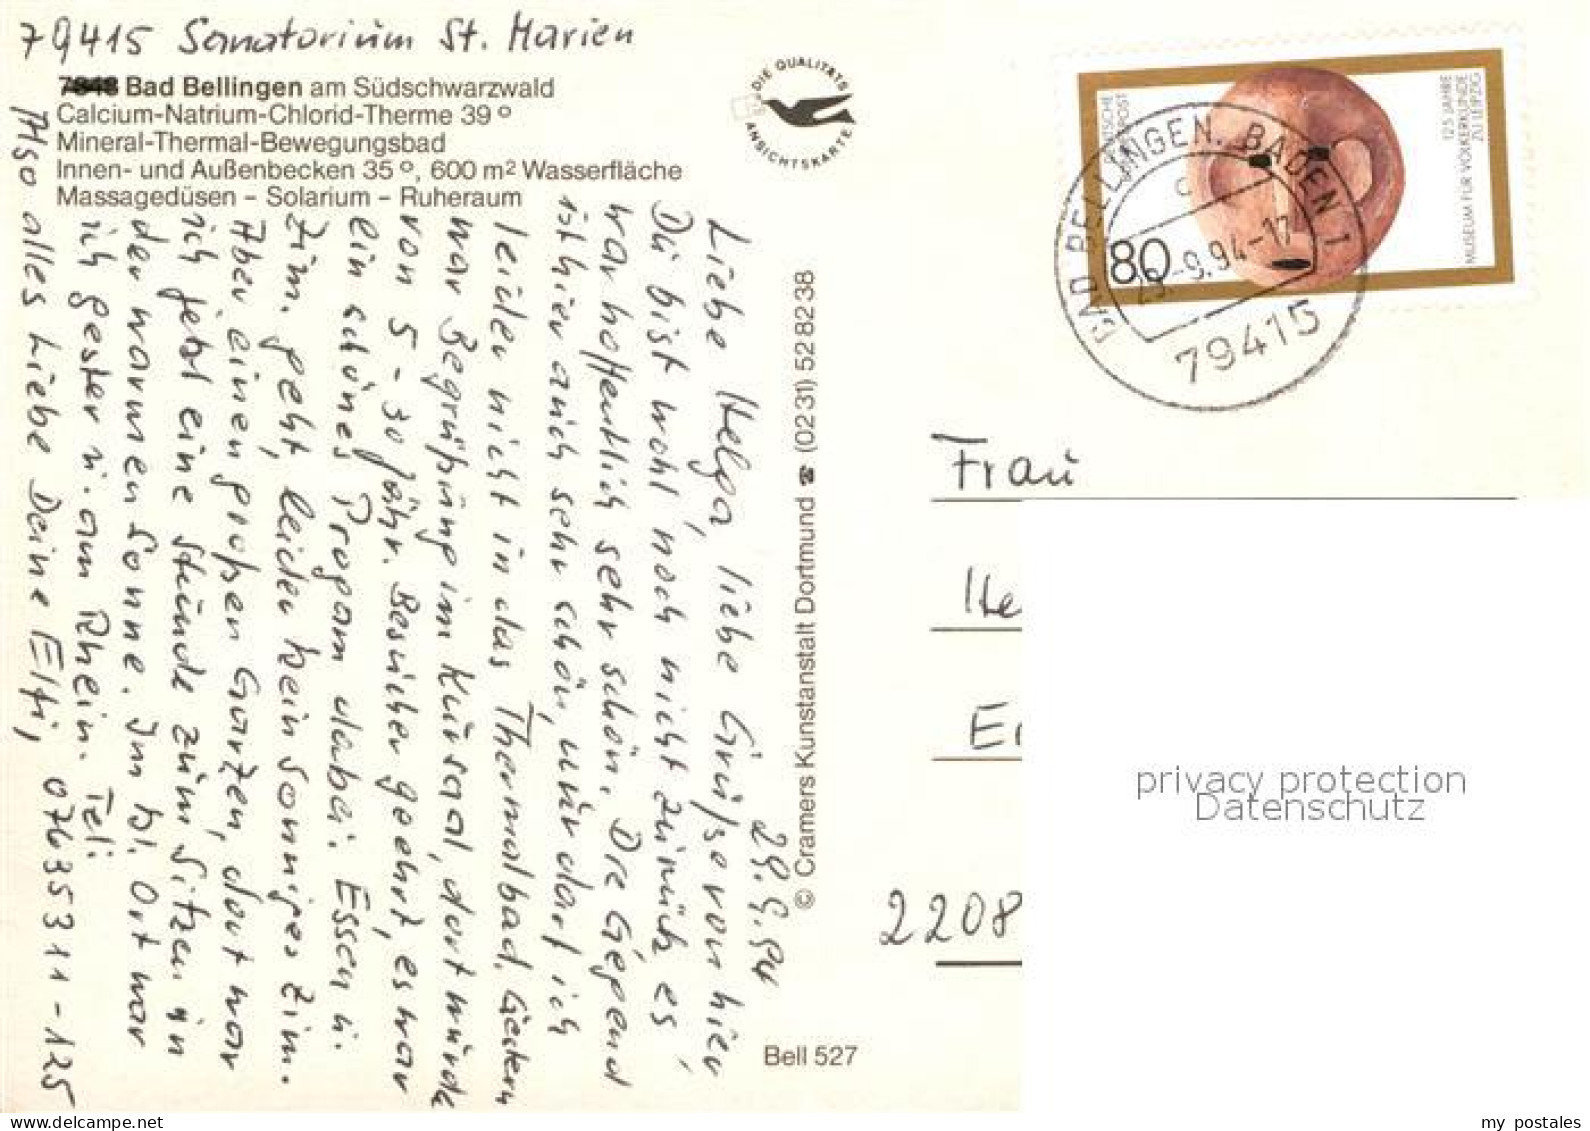 79415 Sanatorium St. Marien
7848 Bad Bellingen am Südschwarzwald
Calcium-Natrium-Chlorid-Therme 39 °
Mineral-Thermal-Bewegungsbad
Innen- und Außenbecken 35 °, 600 m² Wasserfläche
Massagedüsen – Solarium – Ruheraum
DIE QUALITÄTS
ANSICHTSKARTE
29.9.94
Liebe Helga, liebe Grüße von hier
Du bist wohl noch nicht zurück es
war hoffentlich sehr schön. Die Gegend
ist hier auch sehr schön, nur darf ich
leider nicht in das Thermalbad. Gestern
war Begrüßung im Kursaal, dort wurde
von 5 - 30 jähr. Besucher geehrt, es war
ein schönes Program dabei. Essen u.
Zim. geht, leider kein sonniges Zim.
Aber einen großen Garten, dort war
ich jetzt eine Stunde zum Sitzen in
der warmen Sonne. Im kl. Ort war
ich gester u. am Rhein. Tel:
Also alles Liebe Deine Elfi, 07635311-125
© Cramers Kunstanstalt Dortmund ☎ (02 31) 52 82 38
Bell 527
DEUTSCHE
BUNDESPOST
80
125 JAHRE
MUSEUM FÜR VÖLKERKUNDE
ZU LEIPZIG
BAD BELLINGEN, BADEN 1
c
29.-9.94-17
79415
Frau
He
2208
privacy protection
Datenschutz
my postales